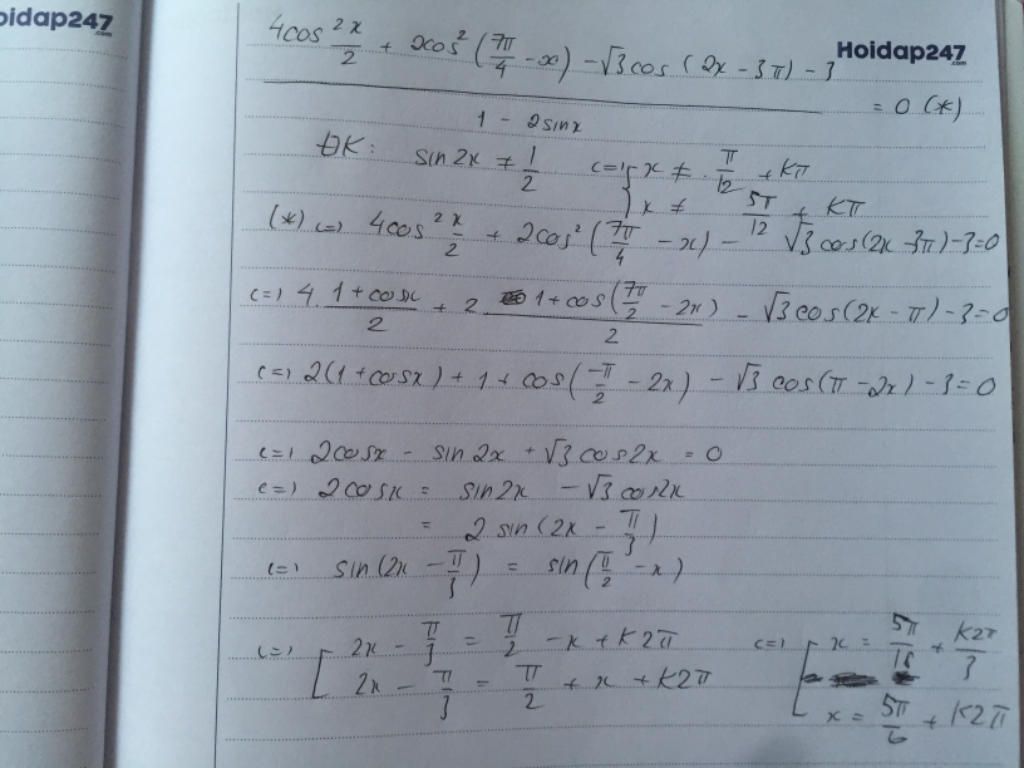 oidap247
.com
Hoidap247
.com
4cos² x/2 + 2cos² (7π/4 - x) - √3 cos (2x - 3π) - 3
= 0 (*)
1 - 2sinx
ĐK: sin2x ≠ 1/2 <=> { x ≠ π/12 + Kπ
x ≠ 5π/12 + Kπ
(*) <=> 4cos² x/2 + 2cos² (7π/4 - x) - √3 cos(2x - 3π) - 3 = 0
<=> 4. (1 + cosx)/2 + 2 (1 + cos(7π/2 - 2x))/2 - √3 cos(2x - π) - 3 = 0
<=> 2(1 + cosx) + 1 + cos(-π/2 - 2x) - √3 cos(π - 2x) - 3 = 0
<=> 2cosx - sin2x + √3 cos2x = 0
<=> 2cosx = sin2x - √3 cos2x
= 2 sin(2x - π/3)
<=> sin(2x - π/3) = sin(π/2 - x)
<=> [ 2x - π/3 = π/2 - x + K2π <=> [ x = 5π/18 + K2π/3
2x - π/3 = π/2 + x + K2π x = 5π/6 + K2π